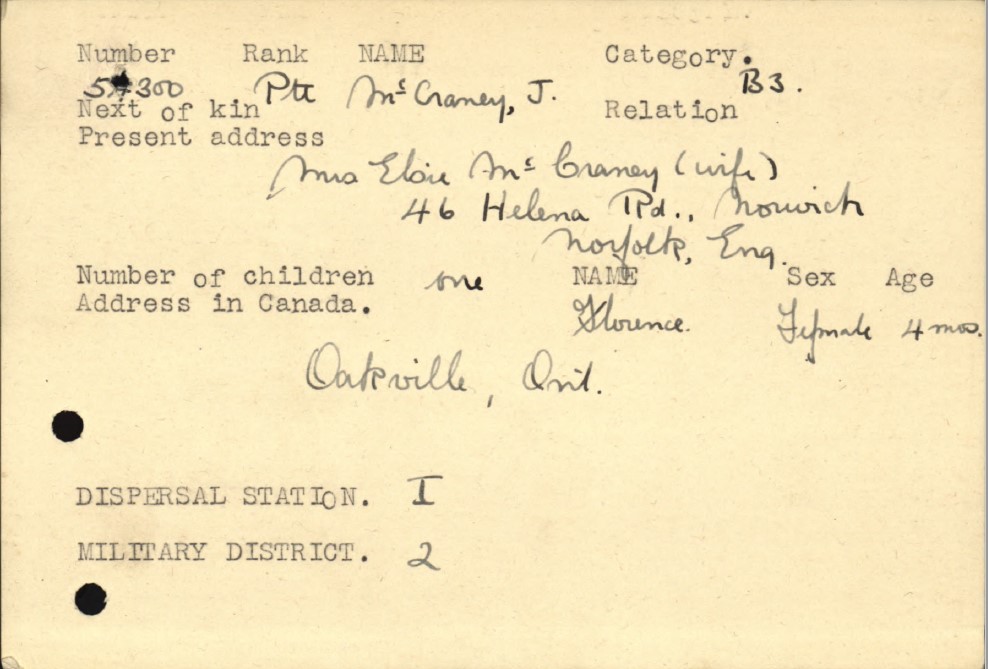 Number Rank NAME Category.
Pte McCraney, J. B3.
Next of kin Relation
Present address
Mrs Elsie McCraney (wife)
46 Helena Rd., Norwich
Norfolk, Eng.
Number of children one NAME Sex Age
Address in Canada.
Florence. Female 4 mos.
Oakville, Ont.
DISPERSAL STATION. I
MILITARY DISTRICT. 2